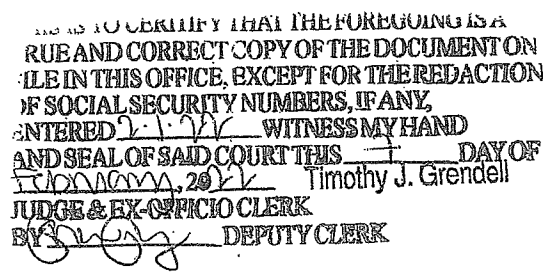 IS TO CERTIFY THAT THE FOREGOING IS A
RUE AND CORRECT COPY OF THE DOCUMENT ON
ILE IN THIS OFFICE, EXCEPT FOR THE REDACTION
OF SOCIAL SECURITY NUMBERS, IF ANY,
ENTERED 2.1.22 WITNESS MY HAND
AND SEAL OF SAID COURT THIS DAY OF
February, 2022 Timothy J. Grendell
JUDGE & EX-OFFICIO CLERK
BY DEPUTY CLERK